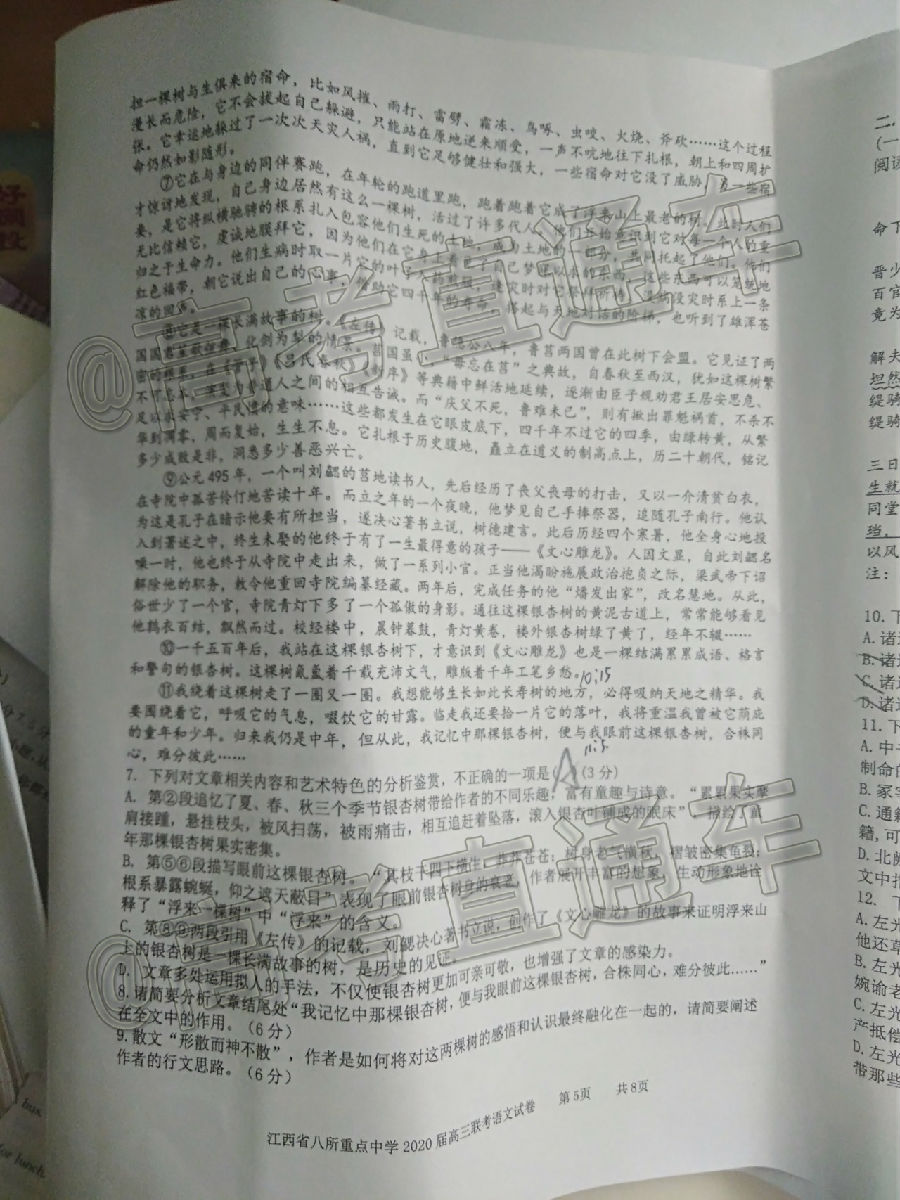 担一棵树与生俱来的宿命，比如风摧、雨打、雷劈、霜冻、鸟啄、虫咬、火烧、斧砍……这个过程
漫长而危险，它不会拔起自己躲避，只能站在原地逆来顺受，一声不吭地往下扎根，朝上和四周扩
张。它幸运地躲过了一次次天灾人祸，直到它足够健壮和强大，一些宿命对它没了威胁，
命仍然如影随形。
⑦它在与身边的同伴赛跑，在年轮的跑道里跑，跑着跑着它成了浮来山上最老的树。
才惊讶地发现，自己身边居然有这么一棵树，活过了许多代人，他们开始意识到它对每一个人的重
要，是它将纵横驰骋的根系扎入包容他们生死的土地，成为土地的一部分，共同托起了他们。他们
无比信赖它，虔诚地膜拜它，因为他们在它身上看到了自己
归之于生命力。他们生病时取一片它的叶子
红色福带，朝它说出自己的心事，借助它四千年的寿命，搭起与天地对话的阶梯，也听到了雄浑苍
凉的回声。
⑧它是一棵长满故事的树。《左传》记载，鲁隐公八年，鲁莒两国曾在此树下会盟。它见证了两
国国君
密的根系，在《管子》《吕氏春秋》《新序》等典籍中鲜活地延续，逐渐由臣子规劝君王居安思危、
人之间的相互告诫。而“庆父不死，鲁难未已”，则有揪出罪魁祸首，不杀不
足以求安宁、平民愤的意味……这些都发生在它眼皮底下，四千年不过它的四季，由绿转黄，从繁
华到凋零，周而复始，生生不息。它扎根于历史腹地，矗立在道义的制高点上，历二十朝代，铭记
多少成败是非，洞悉多少善恶兴亡。
⑨公元495年，一个叫刘勰的莒地读书人，先后经历了丧父丧母的打击，又以一个清贫白衣，
在寺院中孤苦伶仃地苦读十年。而立之年的一个夜晚，他梦见自己手捧祭器，追随孔子南行。他认
为这是孔子在暗示他要有所担当，遂决心著书立说，树德建言。此后历经四个寒暑，他全身心地投
入到著述之中，终生未娶的他终于有了一生最得意的孩子——《文心雕龙》。人因文显，自此刘勰名
噪一时，他也终于从寺院中走出来，做了一系列小官。正当他满盼施展政治抱负之际，梁武帝下诏
解除他的职务，敕令他重回寺院编纂经藏。两年后，完成任务的他“燔发出家”，改名慧地。从此，
俗世少了一个官，寺院青灯下多了一个孤傲的身影。通往这棵银杏树的黄泥古道上，常常能够看见
他鹑衣百结，飘然而过。校经楼中，晨钟暮鼓，青灯黄卷，楼外银杏树绿了黄了，经年不辍……
⑩一千五百年后，我站在这棵银杏树下，才意识到《文心雕龙》也是一棵结满累累成语、格言
和警句的银杏树。这棵树氤氲着千载充沛文气，雕版着千年工笔乡愁。
10,15
⑪我绕着这棵树走了一圈又一圈。我想能够生长如此长寿树的地方，必得吸纳天地之精华。我
要围绕着它，呼吸它的气息，啜饮它的甘露。临走我还要拾一片它的落叶，我将重温我曾被它荫庇
的童年和少年。归来我仍是中年，但从此，我记忆中那棵银杏树，便与我眼前这棵银杏树，合株同
心，难分彼此……
7. 下列对文章相关内容和艺术特色的分析鉴赏，不正确的一项是（ A ）（3分）
A. 第②段追忆了夏、春、秋三个季节银杏树带给作者的不同乐趣，富有童趣与诗意。“累累果实摩
肩接踵，悬挂枝头，被风扫荡，被雨痛击，相互追赶着坠落，滚入银杏叶铺成的眠床”，描绘了童
年那棵银杏树果实密集。
B. 第⑤⑥段描写眼前这棵银杏树，“其枝干四下横生，莽莽苍苍；树身老气横秋，褶皱密集龟裂；
根系暴露蜿蜒，仰之遮天蔽日”表现了眼前银杏树身的衰老，作者展开丰富的想象，生动形象地诠
释了“浮来一棵树”中“浮来”的含义。
C. 第⑧⑨两段引用《左传》的记载，刘勰决心著书立说，创作了《文心雕龙》的故事来证明浮来山
上的银杏树是一棵长满故事的树，是历史的见证。
D. 文章多处运用拟人的手法，不仅使银杏树更加可亲可敬，也增强了文章的感染力。
8. 请简要分析文章结尾处“我记忆中那棵银杏树，便与我眼前这棵银杏树，合株同心，难分彼此……”
在全文中的作用。（6分）
9. 散文“形散而神不散”，作者是如何将对这两棵树的感悟和认识最终融化在一起的，请简要阐述
作者的行文思路。（6分）
江西省八所重点中学2020届高三联考语文试卷 第5页 共8页
@高考直通车
@高考直通车
二、
（一
阅读
命下
晋少
百官
竟为
解夫
坦然
缇骑
缇骑
三日
生就
同堂
珰，
以风
注：
10. 下
A. 诸
B. 诸
C. 诸
D. 诸
11. 下
A. 中
制命的
B. 冢宰
C. 通籍
籍，可
D. 北阙
文中指
12. 下
A. 左光
他还草
B. 左光
婉谕老
C. 左光
产抵偿
D. 左光
带那些